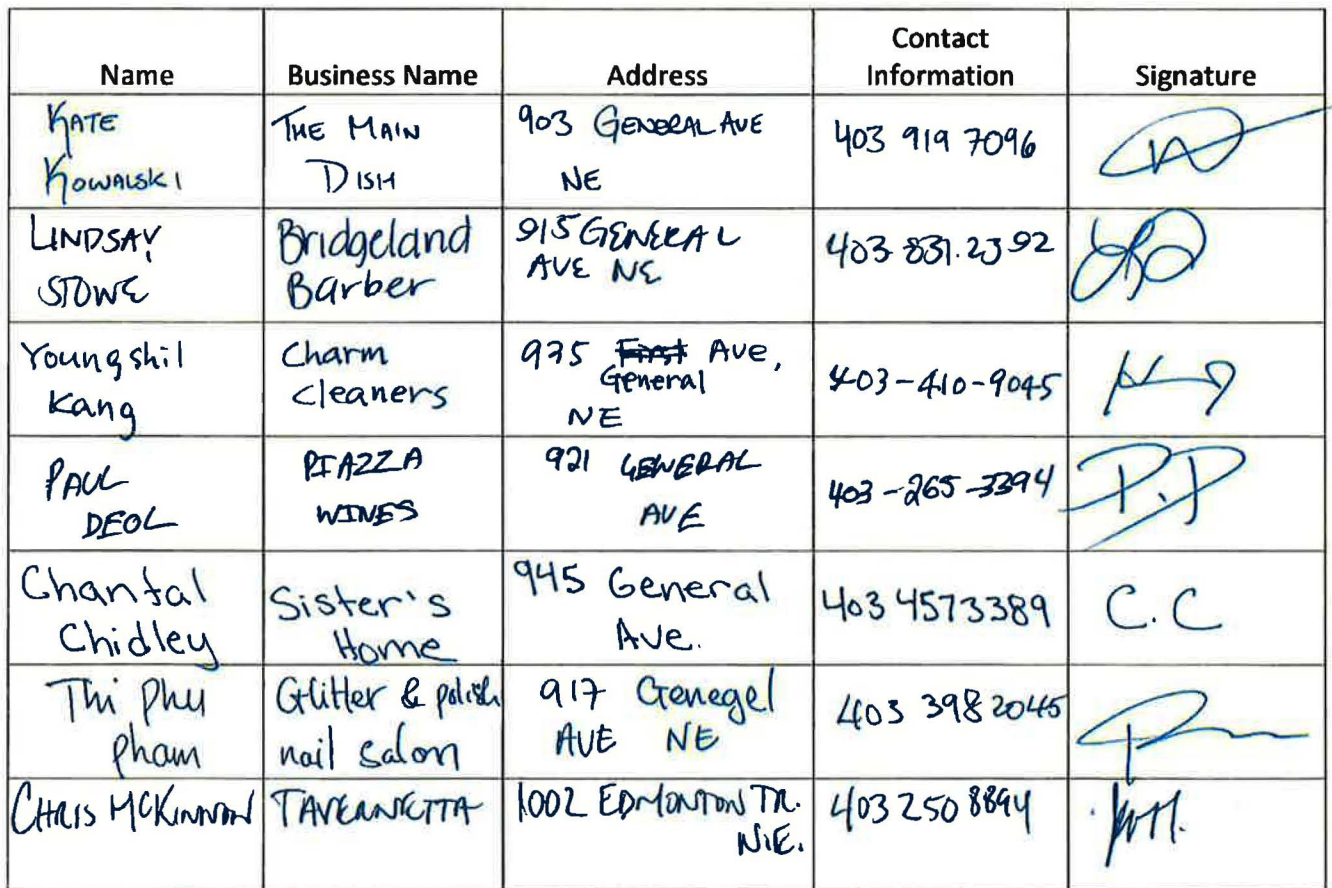 Name Business Name Address Contact Information Signature
KATE KOWALSKI THE MAIN DISH 903 GENERAL AVE NE 403 919 7096
LINDSAY STOWE Bridgeland Barber 915 GENERAL AVE NE 403.831.2392
Youngshil Kang Charm Cleaners 935 First Ave, General NE 403-410-9045
PAUL DEOL PIAZZA WINES 921 GENERAL AVE 403-265-3394 P.D
Chantal Chidley Sister's Home 945 General Ave. 403 4573389 C.C
Thi Phu Pham Glitter & polish nail salon 917 Genegel AVE NE 403 398 2045
CHRIS MCKINNON TAVERNETTA 1002 EDMONTON TR. N.E. 403 250 8894